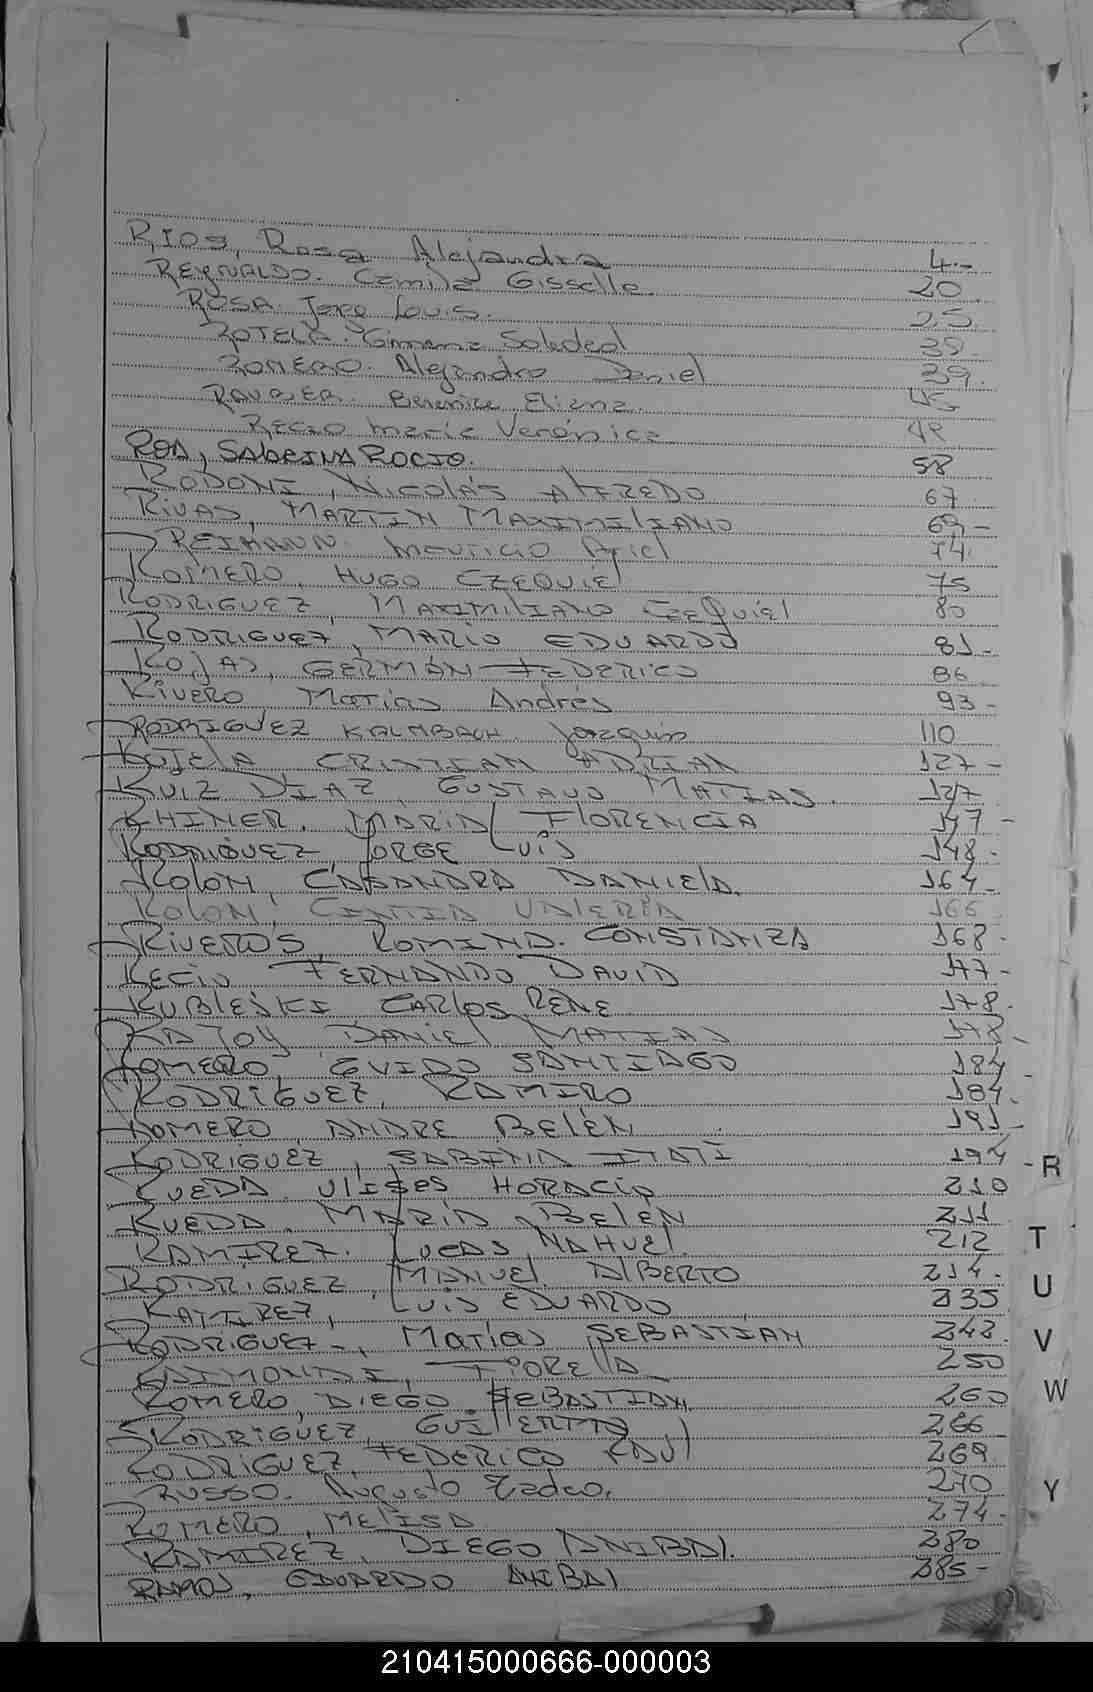 RIOS, Rosa Alejandra 4.-
REYNALDO. Camila Gisselle. 20
ROSA. Jorge Louis. 25.
ROTELA. Gimena Soledad 39.
ROMERO. Alejandro Daniel 39.
Berenice Eliana. 45
RECIO María Verónica 48
ROA, SABRINA ROCIO. 58
RODONI, NICOLÁS ALFREDO 67
RIVAS, MARTIN MAXIMILIANO 69-
REIMANN. Mauricio Ariel 74.
ROMERO, HUGO EZEQUIEL 75
RODRIGUEZ, MAXIMILIANO EZEQUIEL 80
RODRIGUEZ, MARIO EDUARDO 81-
ROJAS, GERMÁN FEDERICO 86
RIVERO Matías Andrés 93-
RODRIGUEZ KALMBACH. Joaquín 110
CRISTIAN ADRIAN 127-
RUIZ DIAZ, GUSTAVO MATIAS. 127
RHINER, MARIA FLORENCIA 147-
RODRIGUEZ, JORGE LUIS 148.
ROLON, CASANDRA DANIELA. 164-
ROLON, CINTIA VALERIA 166
RIVEROS, ROMINA. CONSTANZA 168.
RECIO FERNANDO DAVID 177-
RUBLESKI CARLOS RENE 178.
DANIEL MATIAS 178-
ROMERO, GUIDO SANTIAGO 184-
RODRIGUEZ, RAMIRO 184.
ROMERO, ANDRE BELÉN 191-
RODRIGUEZ, SABINA ITATI 194-
RUEDA. ULISES HORACIO 210
RUEDA. MARIA BELÉN 211
RAMIREZ. LUCAS NAHUEL. 212
RODRIGUEZ, MANUEL ALBERTO 214.
RAMIREZ, LUIS EDUARDO 235
RODRIGUEZ, Matías SEBASTIÁN 242.
RAIMONDI, FIORELLA 250
ROMERO, DIEGO SEBASTIAN 260
RODRIGUEZ, GUILLERMO 266
RODRIGUEZ, FEDERICO RAUL 269.
RUSSO. Augusto Tadeo. 270
ROMERO, MELISA 274.
RAMIREZ, DIEGO ANIBAL. 280
RAMOS, EDUARDO ANIBAL 285-
R
T
U
V
W
Y
210415000666-000003